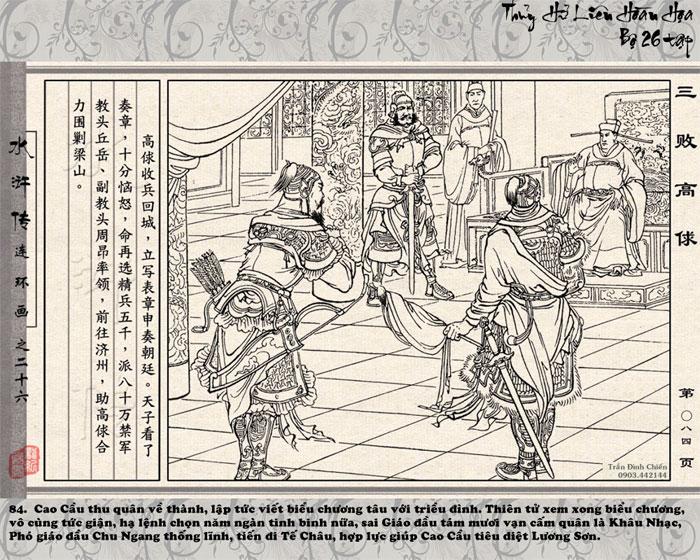 Thủy Hử Liên Hoàn Họa
Bộ 26 tập
三败高俅
水浒传连环画之二十六
高俅收兵回城，立写表章申奏朝廷。天子看了
奏章，十分恼怒，命再选精兵五千，派八十万禁军
教头丘岳、副教头周昂率领，前往济州，助高俅合
力围剿梁山。
第〇八四页
Trần Đình Chiến
0903.442144
84. Cao Cầu thu quân về thành, lập tức viết biểu chương tâu với triều đình. Thiên tử xem xong biểu chương,
vô cùng tức giận, hạ lệnh chọn năm ngàn tinh binh nữa, sai Giáo đầu tám mươi vạn cấm quân là Khâu Nhạc,
Phó giáo đầu Chu Ngang thống lĩnh, tiến đi Tế Châu, hợp lực giúp Cao Cầu tiêu diệt Lương Sơn.